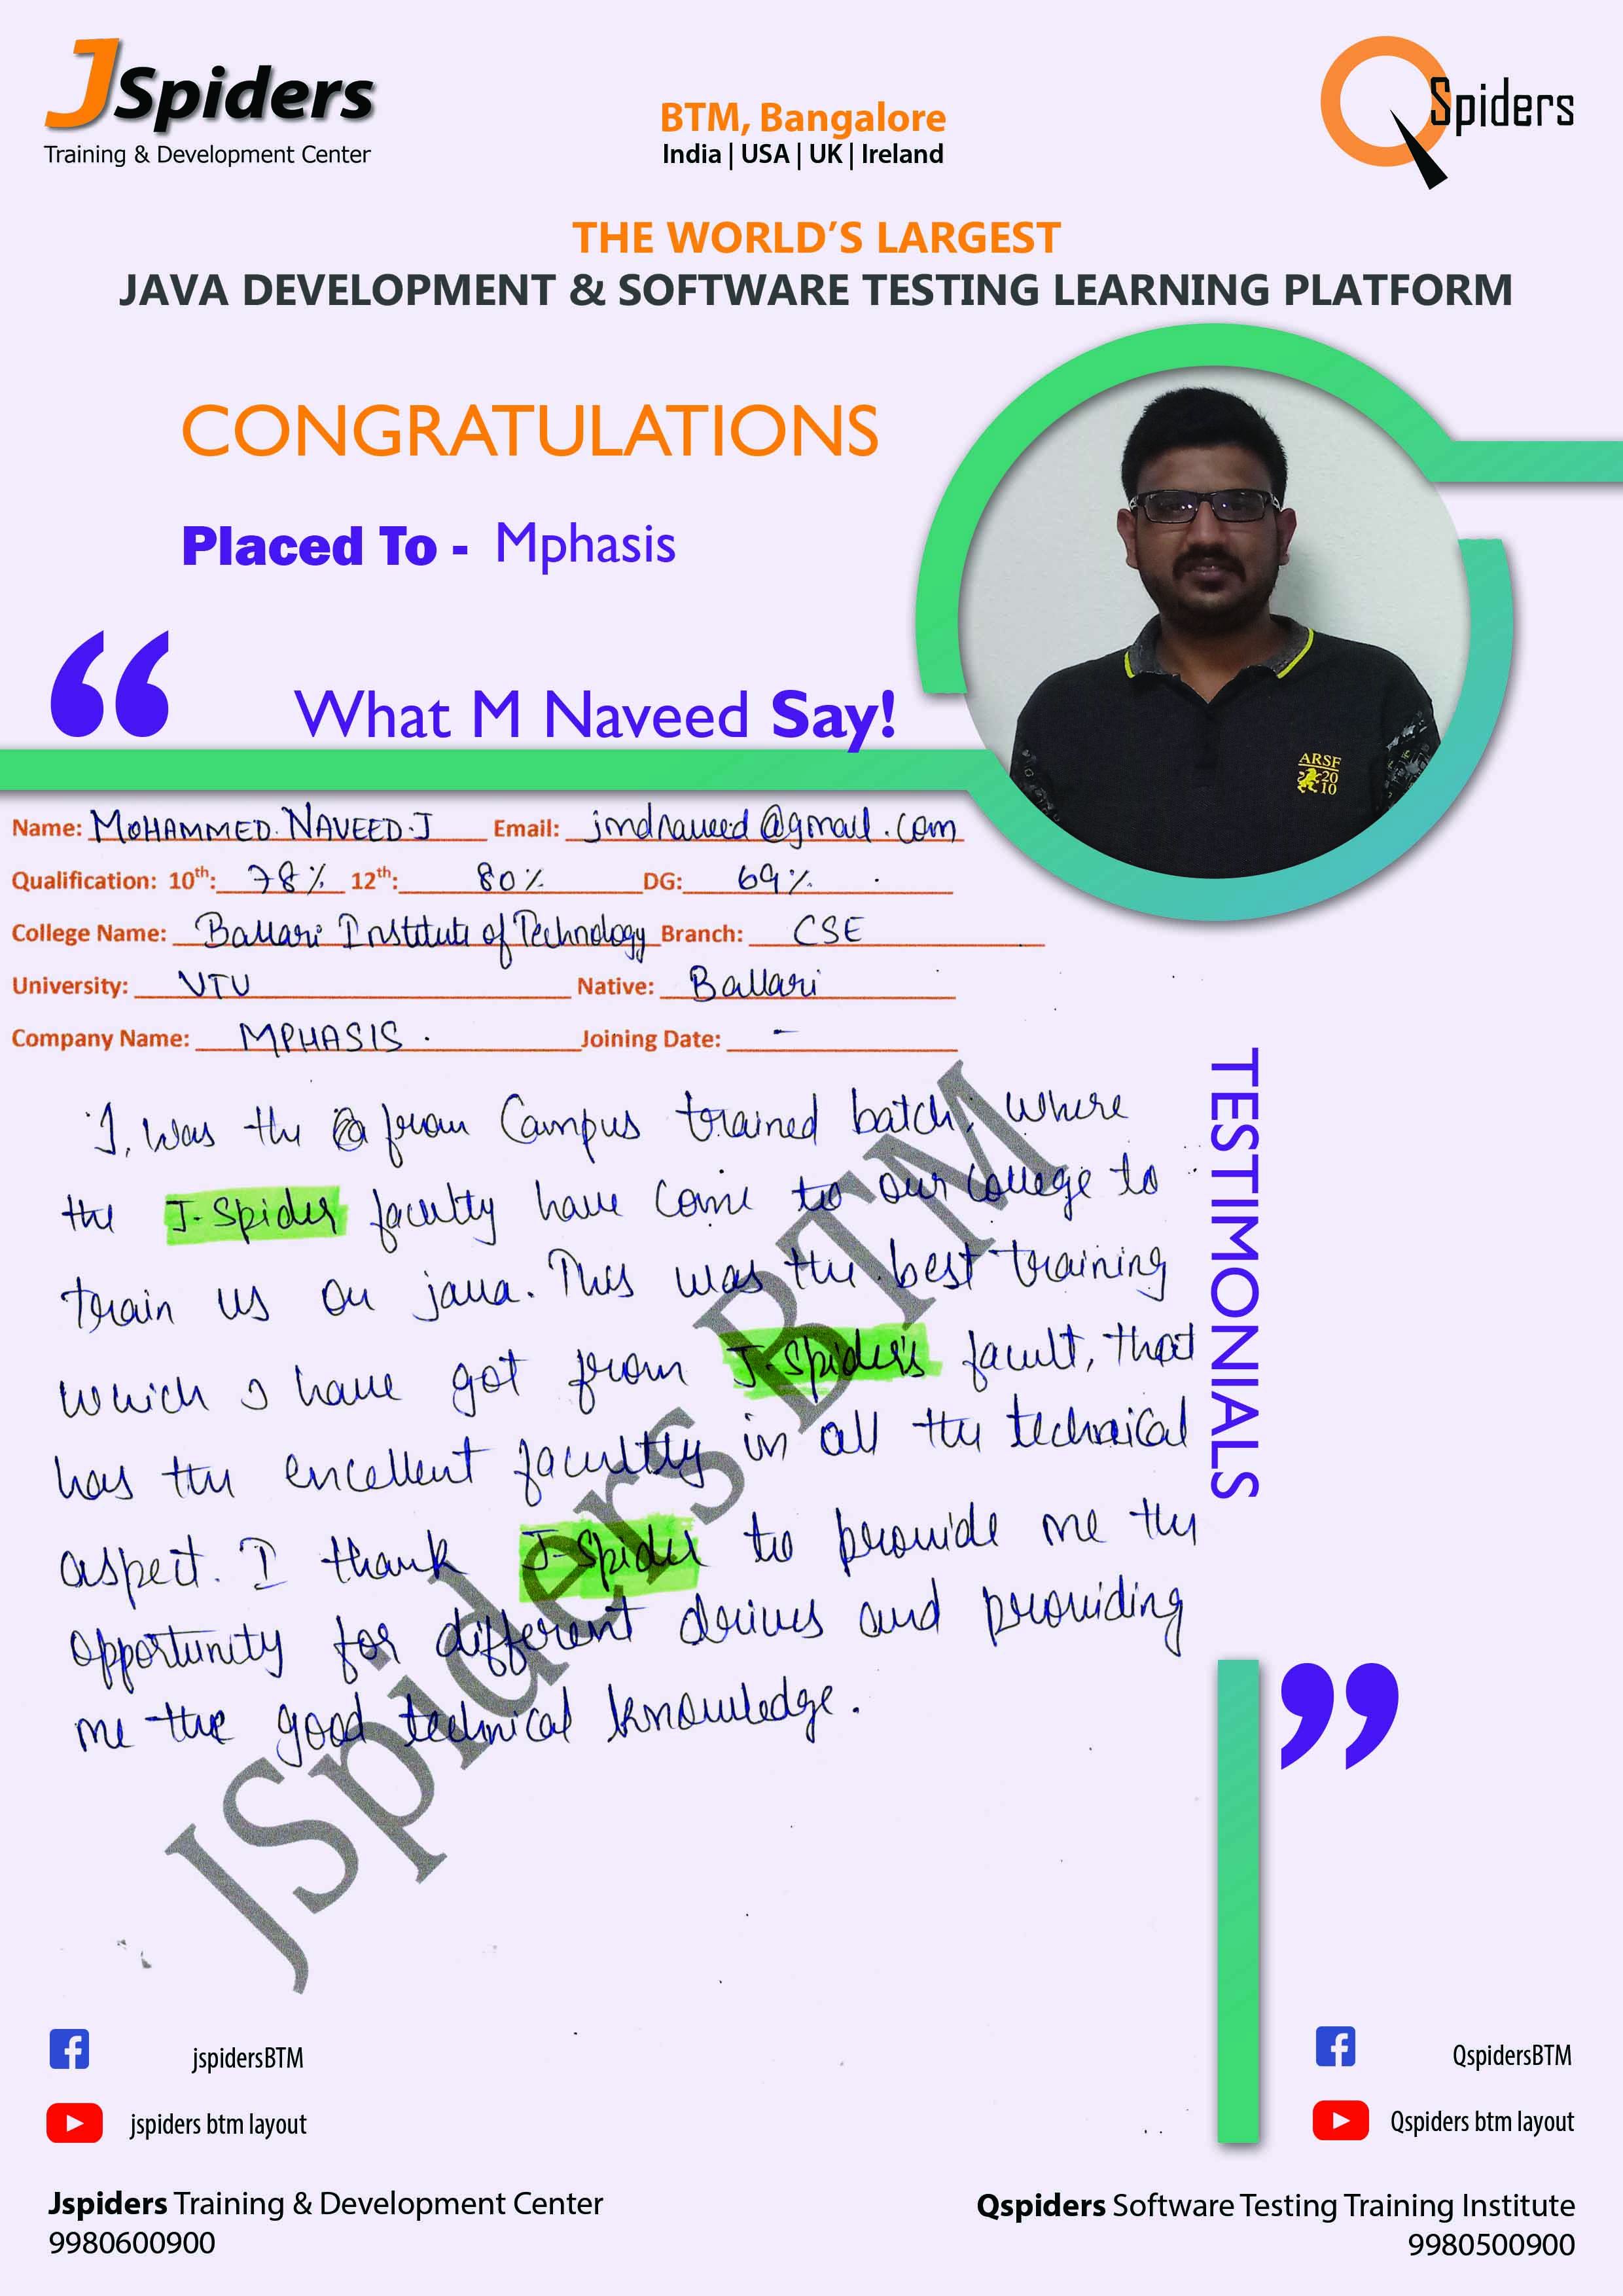 JSpiders
Training & Development Center
BTM, Bangalore
India | USA | UK | Ireland
QSpiders
THE WORLD'S LARGEST
JAVA DEVELOPMENT & SOFTWARE TESTING LEARNING PLATFORM
CONGRATULATIONS
Placed To - Mphasis
“ What M Naveed Say!
ARSF
20
10
Name: MOHAMMED. NAVEED.J Email: jmdnaveed@gmail.com
Qualification: 10th: 78% 12th: 80% DG: 69%
College Name: Ballari Institute of Technology Branch: CSE
University: VTU Native: Ballari
Company Name: MPHASIS. Joining Date: -
I, was the from Campus trained batch, where
the J-Spider faculty have come to our college to
train us on java. This was the best training
which I have got from J-Spider's facult, that
has the encellent facultty in all the technical
aspect. I thank J-Spider to provide me the
opportunity for different drives and providing
me the good technical knowledge.
”
JSpiders BTM
TESTIMONIALS
jspidersBTM
jspiders btm layout
QspidersBTM
Qspiders btm layout
Jspiders Training & Development Center
9980600900
Qspiders Software Testing Training Institute
9980500900